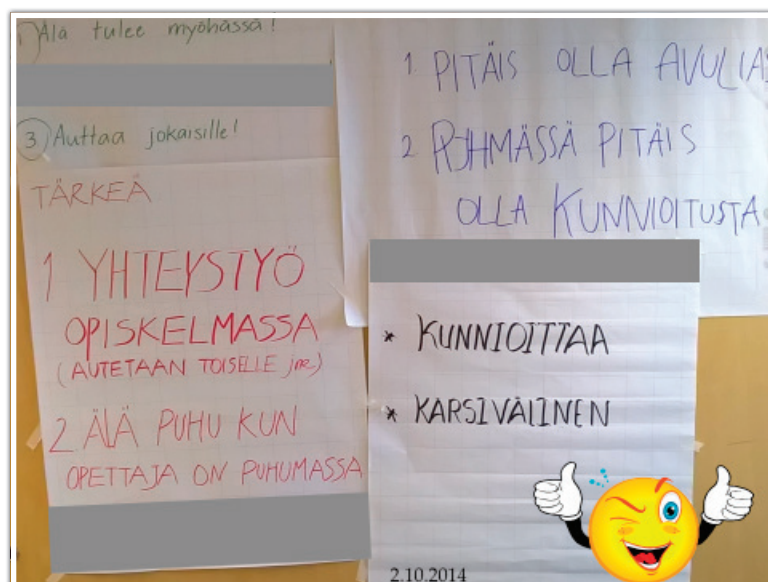 1) Älä tulee myöhässä!
3 Auttaa jokaisille!
TÄRKEÄ
1 YHTEYSTYÖ
OPISKELMASSA
(AUTETAAN TOISELLE jne.)
2 ÄLÄ PUHU KUN
OPETTAJA ON PUHUMASSA
1 PITÄIS OLLA AVULIAS
2 RYHMÄSSÄ PITÄIS
OLLA KUNNIOITUSTA
* KUNNIOITTAA
* KARSIVÄLINEN
2.10.2014